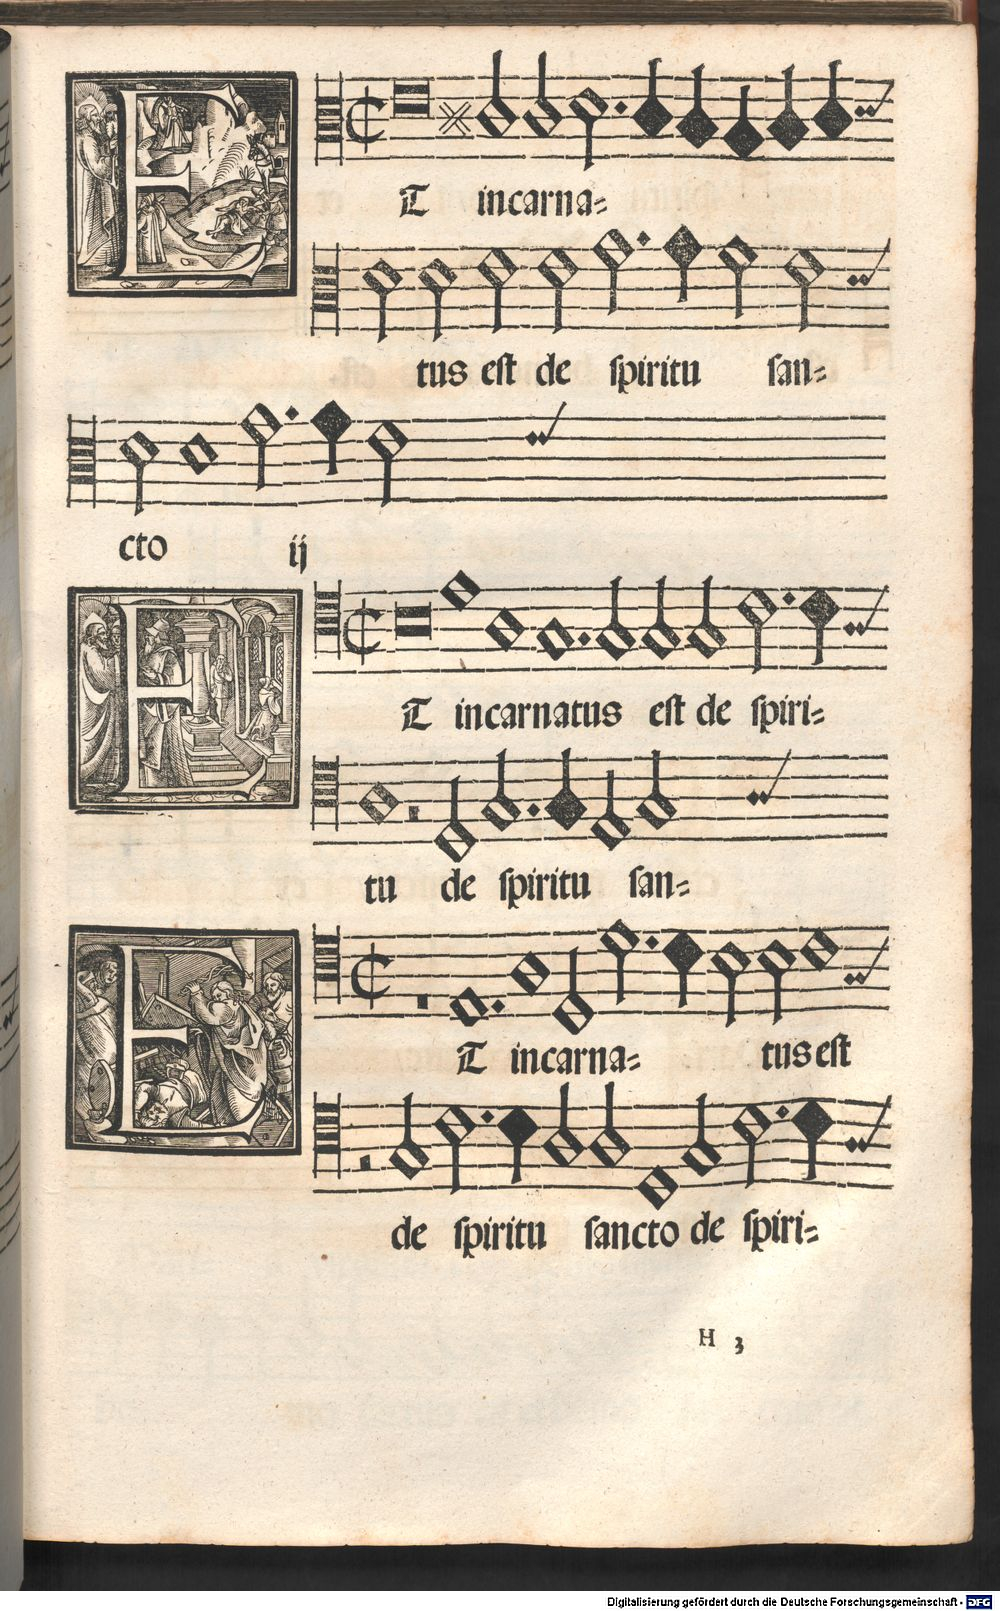 ET incarna=
tus est de spiritu san=
cto ij
ET incarnatus est de spiri=
tu de spiritu san=
ET incarna= tus est
de spiritu sancto de spiri=
H 3
Digitalisierung gefördert durch die Deutsche Forschungsgemeinschaft - DFG